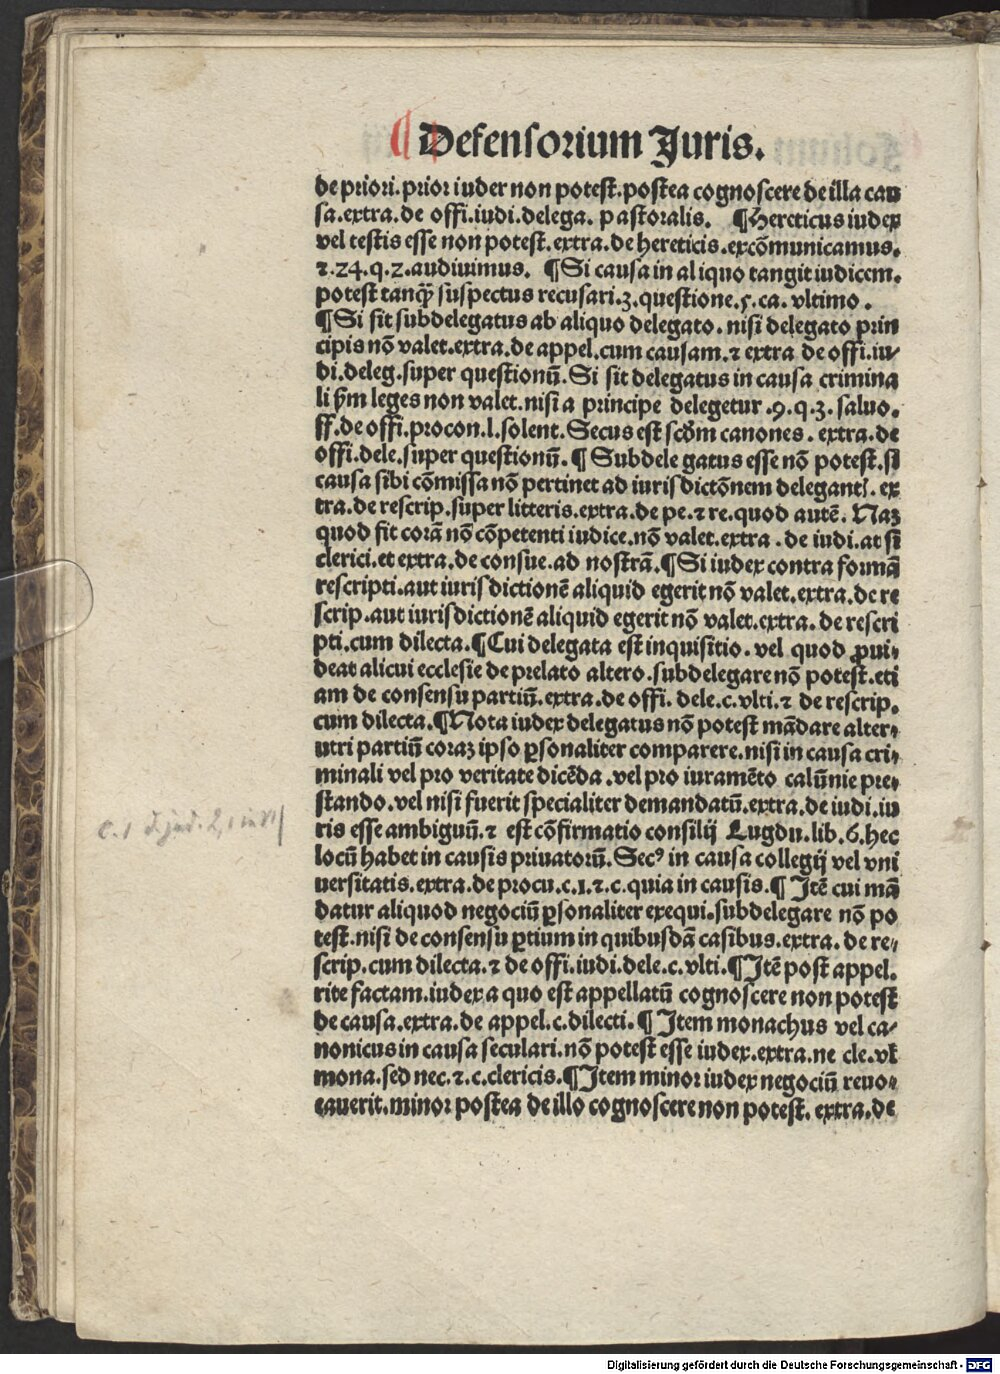 ¶ Defensorium Juris.
de priori.prior iudex non potest.postea cognoscere de illa cau
sa.extra.de offi.iudi.delega. pastoralis. ¶Hereticus iudex
vel testis esse non potest.extra.de hereticis.excōmunicamus.
⁊.24.q.2.audiuimus. ¶Si causa in aliquo tangit iudicem.
potest tanq̄ suspectus recusari.3.questione.5.ca. vltimo.
¶Si sit subdelegatus ab aliquo delegato. nisi delegato prin
cipis nō valet.extra.de appel.cum causam.⁊ extra de offi.iu/
di.deleg.super questionū.Si sit delegatus in causa crimina
li ẜm leges non valet.nisi a principe delegetur .9.q.3. saluo.
ff.de offi.procon.l.solent.Secus est scd̄m canones. extra.de
offi.dele.super questionū.¶Subdelegatus esse nō potest.si
causa sibi cōmissa nō pertinet ad iurisdictōnem delegantꝭ. ex
tra.de rescrip.super litteris.extra.de pe.⁊ re.quod autē. Naꝫ
quod fit corā nō cōpetenti iudice.nō valet.extra.de iudi.at si
clerici.et extra.de consue.ad nostrā.¶Si iudex contra formā
rescripti.aut iurisdictionē aliquid egerit nō valet.extra.de re
scrip.aut iurisdictionē aliquid egerit nō valet.extra. de rescri
pti.cum dilecta.¶Cui delegata est inquisitio. vel quod ꝓui/
deat alicui ecclesie de prelato altero.subdelegare nō potest.eti
am de consensu partiū.extra.de offi. dele.c.vlti.⁊ de rescrip.
cum dilecta.¶Nota iudex delegatus nō potest mādare alter/
utri partiū coraꝫ ipso ꝑsonaliter comparere.nisi in causa cri/
minali vel pro veritate dicēda .vel pro iuramēto calūnie pre/
stando.vel nisi fuerit specialiter demandatū.extra.de iudi.iu
ris esse ambiguū.⁊ est cōfirmatio consilij Lugdu.lib.6.hec
locū habet in causis priuatorū.Secꝰ in causa collegij vel vni
uersitatis.extra.de procu.c.1.⁊.c.quia in causis.¶Itē cui mā
datur aliquod negociū ꝑsonaliter exequi.subdelegare nō po
test.nisi de consensu ꝑtium in quibusdā casibus.extra. de re/
scrip.cum dilecta.⁊ de offi.iudi.dele.c.vlti.¶Itē post appel.
rite factam.iudex a quo est appellatū cognoscere non potest
de causa.extra.de appel.c.dilecti.¶Item monachus vel ca/
nonicus in causa seculari.nō potest esse iudex.extra.ne cle.vł
mona.sed nec.⁊.c.clericis.¶Item minor iudex negociū reuo/
cauerit.minor postea de illo cognoscere non potest. extra.de
Digitalisierung gefördert durch die Deutsche Forschungsgemeinschaft - DFG